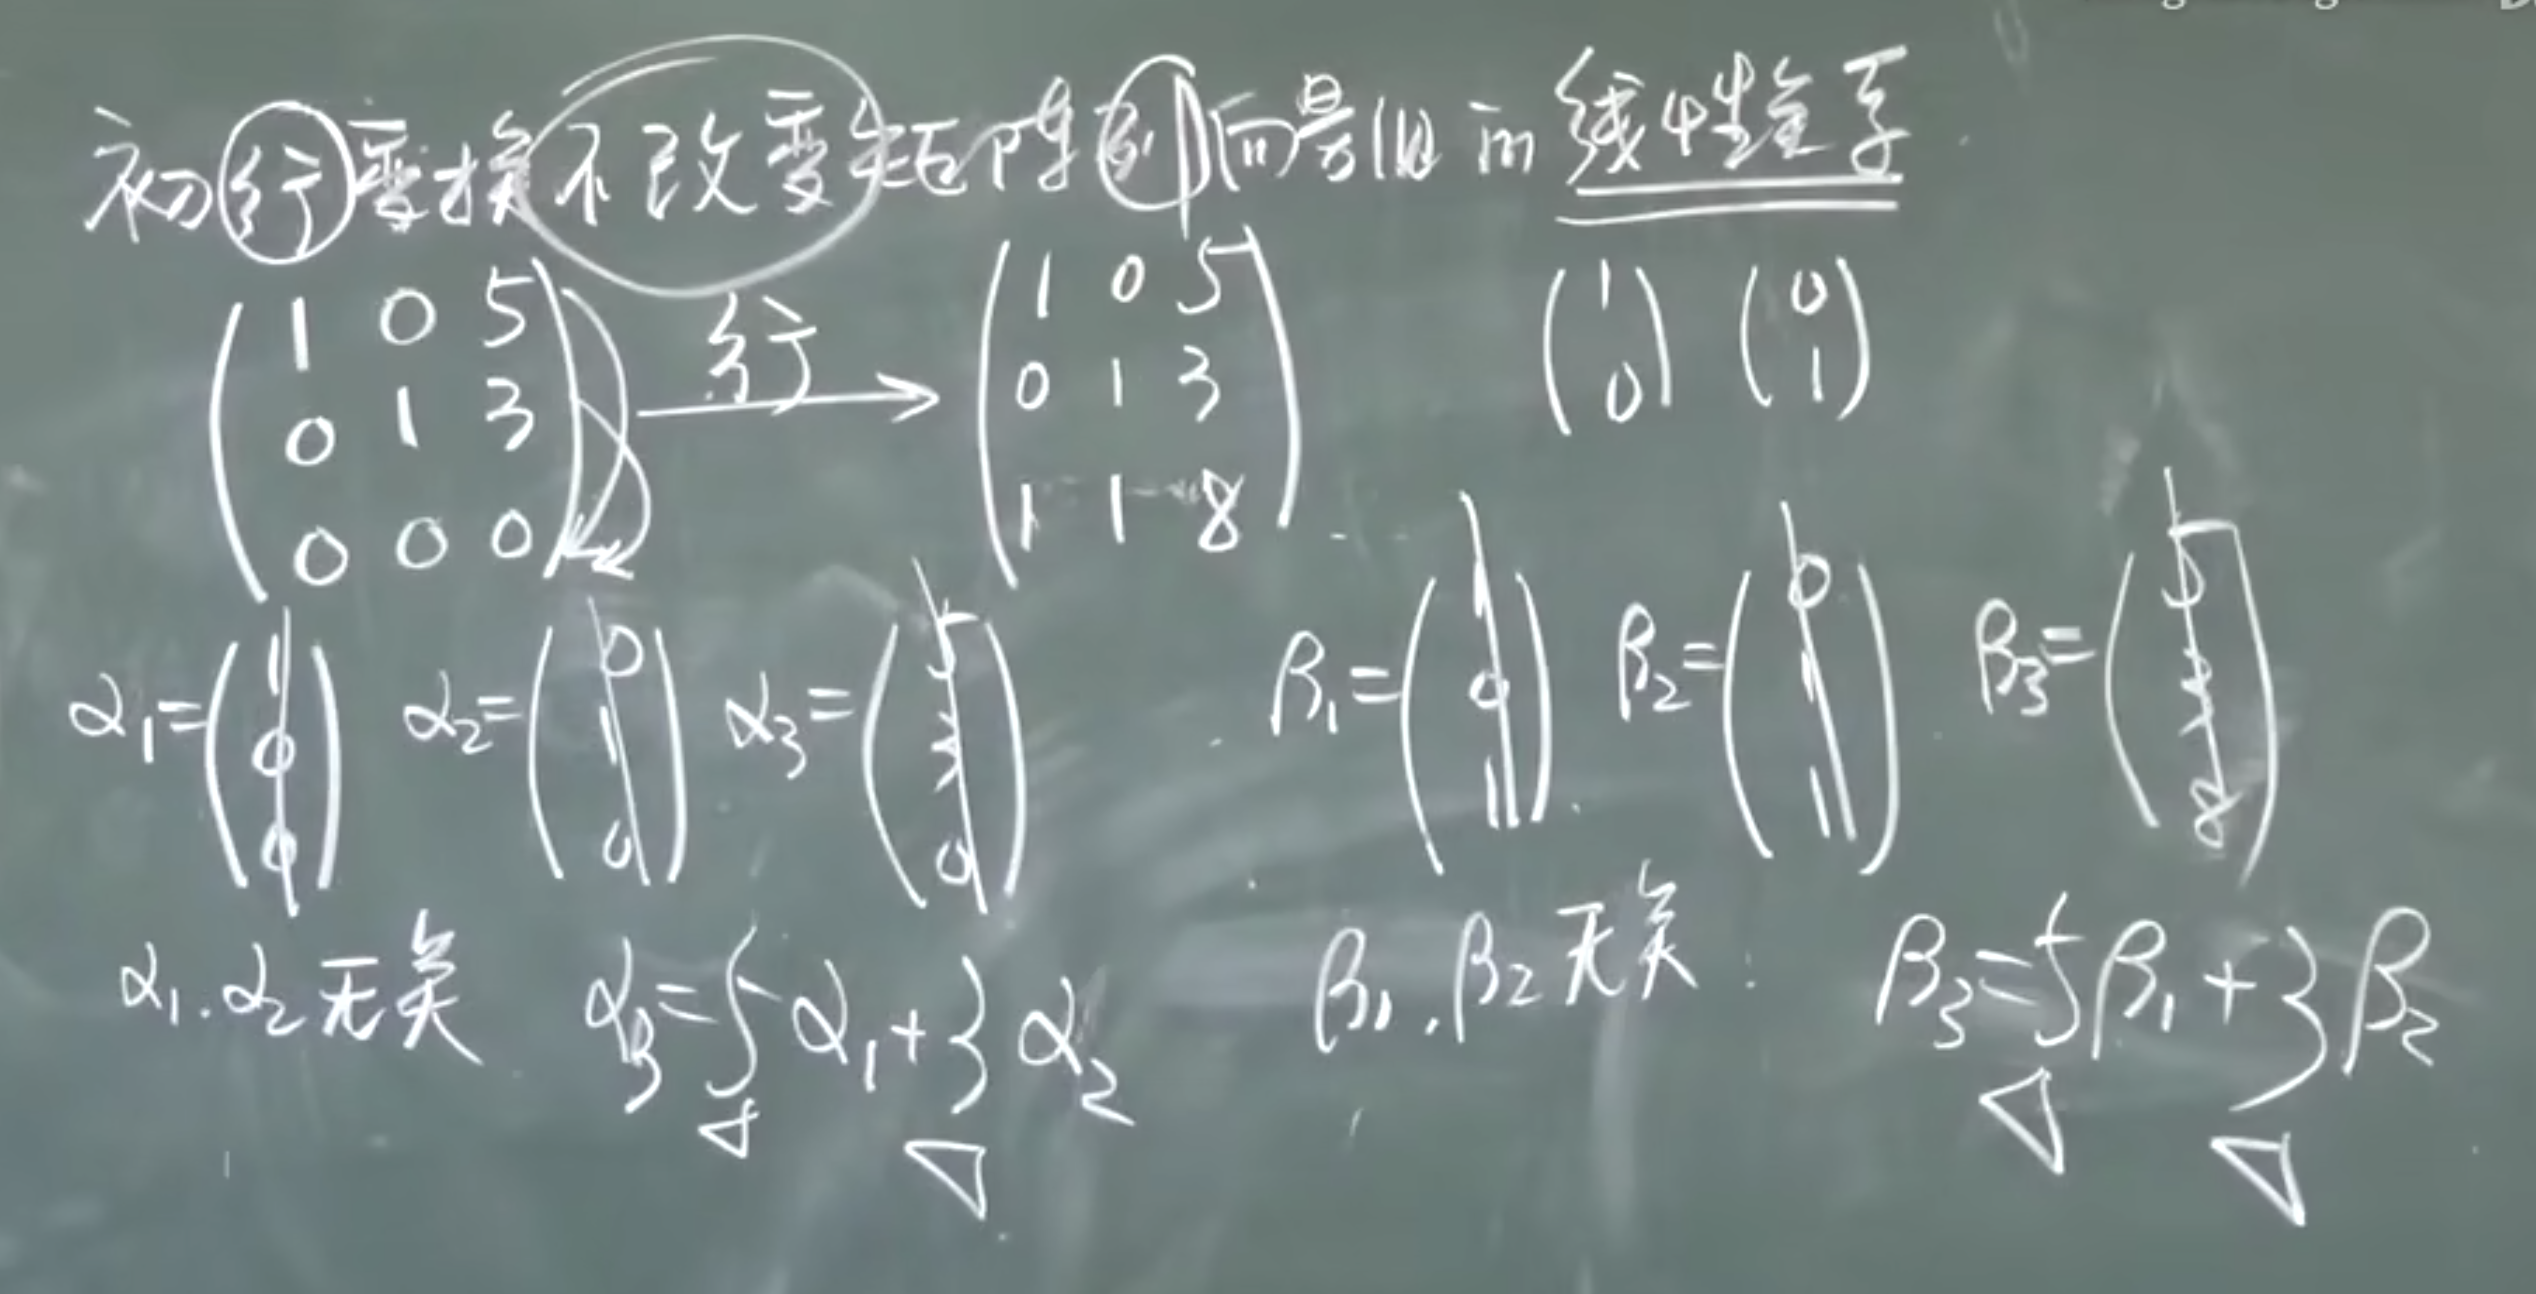 初行变换不改变矩阵列向量组的线性关系.
(1 0 5
0 1 3
0 0 0) 行→ (1 0 5
0 1 3
1 1 8) (1
0) (0
1)
α₁=(1
0
0) α₂=(0
1
0) α₃=(5
3
0) β₁=(1
0
1) β₂=(0
1
1) β₃=(5
3
8)
α₁.α₂无关 α₃=5α₁+3α₂ β₁,β₂无关. β₃=5β₁+3β₂